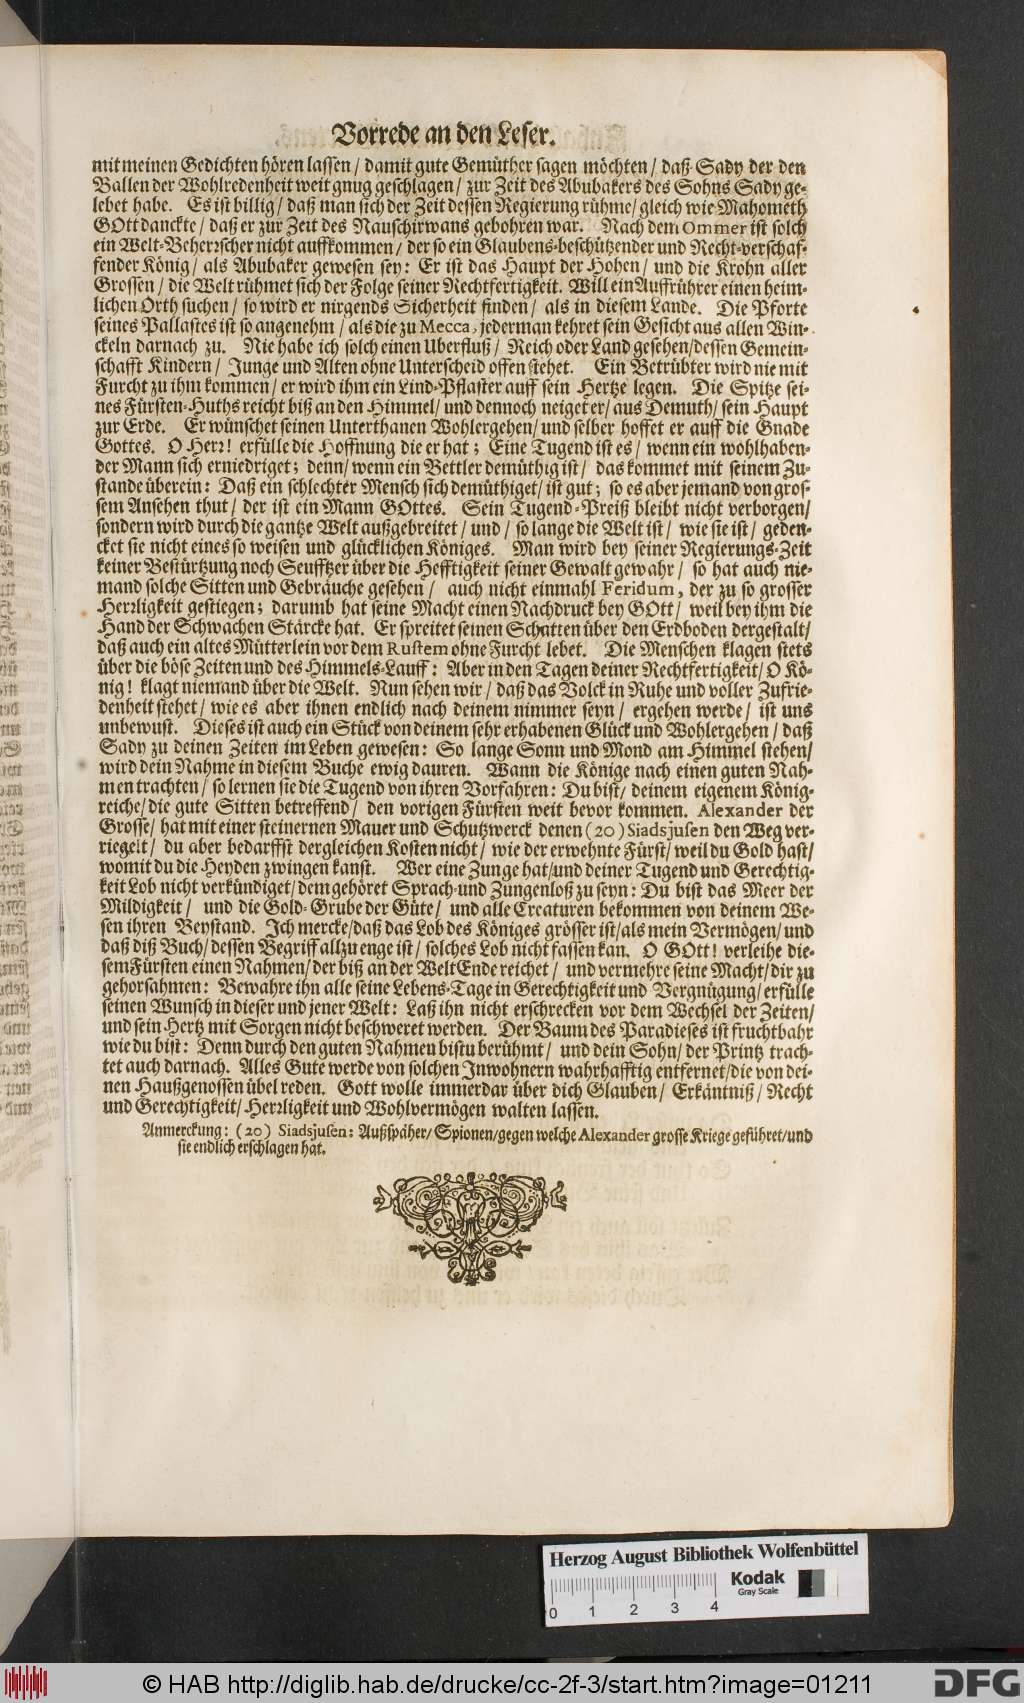 Vorrede an den Leser.
mit meinen Gedichten hören lassen / damit gute Gemüther sagen möchten / daß Sady der den
Ballen der Wohlredenheit weit gnug geschlagen / zur Zeit des Abubakers des Sohns Sady ge-
lebet habe. Es ist billig / daß man sich der Zeit dessen Regierung rühme / gleich wie Mahometh
GOtt danckte / daß er zur Zeit des Nauschirwans gebohren war. Nach dem Ommer ist solch
ein Welt-Beherrscher nicht auffkommen / der so ein Glaubens-beschützender und Recht-verschaf-
fender König / als Abubaker gewesen sey: Er ist das Haupt der Hohen / und die Krohn aller
Grossen / die Welt rühmet sich der Folge seiner Rechtfertigkeit. Will ein Auffrührer einen heim-
lichen Orth suchen / so wird er nirgends Sicherheit finden / als in diesem Lande. Die Pforte
seines Pallastes ist so angenehm / als die zu Mecca, jederman kehret sein Gesicht aus allen Win-
ckeln darnach zu. Nie habe ich solch einen Uberfluß / Reich oder Land gesehen / dessen Gemein-
schafft Kindern / Junge und Alten ohne Unterscheid offen stehet. Ein Betrübter wird nie mit
Furcht zu ihm kommen / er wird ihm ein Lind-Pflaster auff sein Hertze legen. Die Spitze sei-
nes Fürsten-Huths reicht biß an den Himmel / und dennoch neiget er / aus Demuth / sein Haupt
zur Erde. Er wünschet seinen Unterthanen Wohlergehen / und selber hoffet er auff die Gnade
Gottes. O Herr! erfülle die Hoffnung die er hat; Eine Tugend ist es / wenn ein wohlhaben-
der Mann sich erniedriget; denn / wenn ein Bettler demüthig ist / das kommet mit seinem Zu-
stande überein: Daß ein schlechter Mensch sich demüthiget / ist gut; so es aber jemand von gros-
sem Ansehen thut / der ist ein Mann GOttes. Sein Tugend-Preiß bleibt nicht verborgen /
sondern wird durch die gantze Welt außgebreitet / und / so lange die Welt ist / wie sie ist / geden-
cket sie nicht eines so weisen und glücklichen Königes. Man wird bey seiner Regierungs-Zeit
keiner Bestürtzung noch Seufftzer über die Hefftigkeit seiner Gewalt gewahr / so hat auch nie-
mand solche Sitten und Gebräuche gesehen / auch nicht einmahl Feridum, der zu so grosser
Herrligkeit gestiegen; darumb hat seine Macht einen Nachdruck bey GOtt / weil bey ihm die
Hand der Schwachen Stärcke hat. Er spreitet seinen Schatten über den Erdboden dergestalt /
daß auch ein altes Mütterlein vor dem Rustem ohne Furcht lebet. Die Menschen klagen stets
über die böse Zeiten und des Himmels-Lauff: Aber in den Tagen deiner Rechtfertigkeit / O Kö-
nig! klagt niemand über die Welt. Nun sehen wir / daß das Volck in Ruhe und voller Zufrie-
denheit stehet / wie es aber ihnen endlich nach deinem nimmer seyn / ergehen werde / ist uns
unbewust. Dieses ist auch ein Stück von deinem sehr erhabenen Glück und Wohlergehen / daß
Sady zu deinen Zeiten im Leben gewesen: So lange Sonn und Mond am Himmel stehen /
wird dein Nahme in diesem Buche ewig dauren. Wann die Könige nach einen guten Nah-
men trachten / so lernen sie die Tugend von ihren Vorfahren: Du bist / deinem eigenem König-
reiche / die gute Sitten betreffend / den vorigen Fürsten weit bevor kommen. Alexander der
Grosse / hat mit einer steinernen Mauer und Schutzwerck denen (20) Siadsjusen den Weg ver-
riegelt / du aber bedarffst dergleichen Kosten nicht / wie der erwehnte Fürst / weil du Gold hast /
womit du die Heyden zwingen kanst. Wer eine Zunge hat / und deiner Tugend und Gerechtig-
keit Lob nicht verkündiget / dem gehöret Sprach- und Zungenloß zu seyn: Du bist das Meer der
Mildigkeit / und die Gold-Grube der Güte / und alle Creaturen bekommen von deinem We-
sen ihren Beystand. Ich mercke / daß das Lob des Königes grösser ist / als mein Vermögen / und
daß diß Buch / dessen Begriff allzu enge ist / solches Lob nicht fassen kan. O GOtt! verleihe die-
sem Fürsten einen Nahmen / der biß an der Welt Ende reichet / und vermehre seine Macht / dir zu
gehorsahmen: Bewahre ihn alle seine Lebens-Tage in Gerechtigkeit und Vergnügung / erfülle
seinen Wunsch in dieser und jener Welt: Laß ihn nicht erschrecken vor dem Wechsel der Zeiten /
und sein Hertz mit Sorgen nicht beschweret werden. Der Baum des Paradieses ist fruchtbahr
wie du bist: Denn durch den guten Nahmen bistu berühmt / und dein Sohn / der Printz trach-
tet auch darnach. Alles Gute werde von solchen Inwohnern wahrhafftig entfernet / die von dei-
nen Haußgenossen übel reden. Gott wolle immerdar über dich Glauben / Erkäntniß / Recht
und Gerechtigkeit / Herrligkeit und Wohlvermögen walten lassen.
Anmerckung: (20) Siadsjusen: Außspäher / Spionen / gegen welche Alexander grosse Kriege geführet / und
sie endlich erschlagen hat.
Herzog August Bibliothek Wolfenbüttel
Kodak
Gray Scale
0 1 2 3 4
© HAB http://diglib.hab.de/drucke/cc-2f-3/start.htm?image=01211
DFG